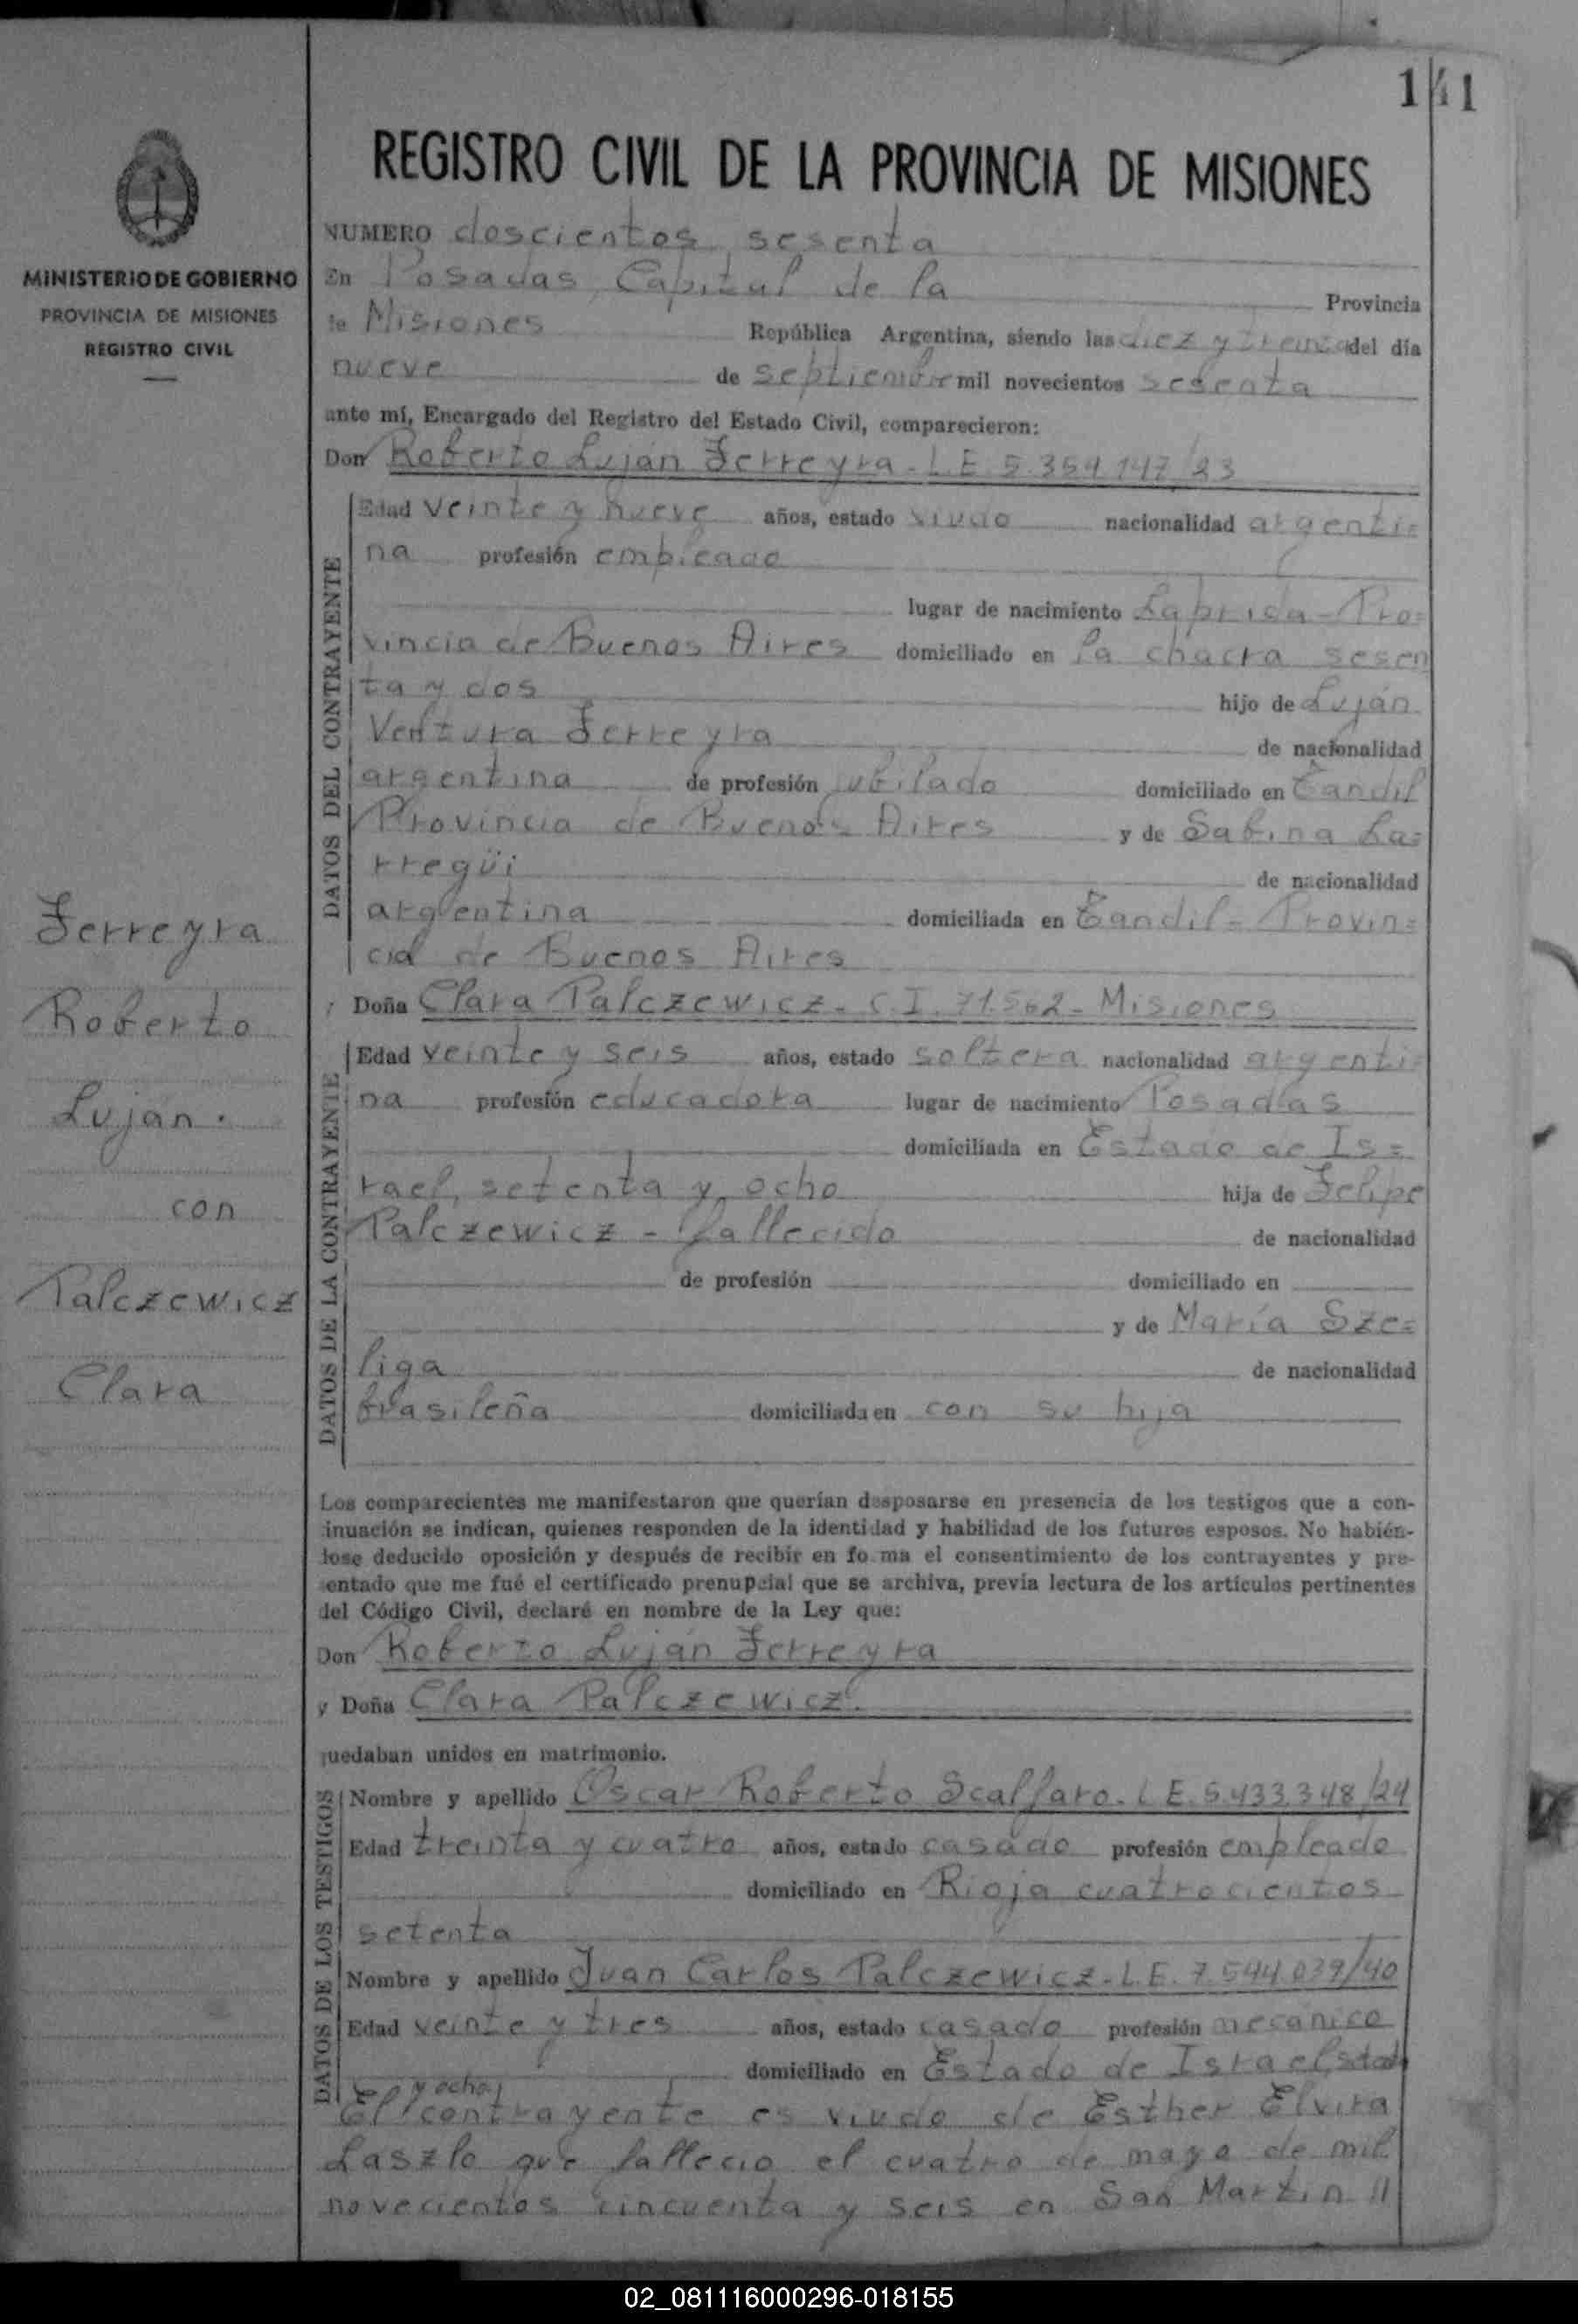 141
REGISTRO CIVIL DE LA PROVINCIA DE MISIONES
MINISTERIO DE GOBIERNO
PROVINCIA DE MISIONES
REGISTRO CIVIL
Ferreyra
Roberto
Luján.
con
Palczewicz
Clara
NUMERO doscientos sesenta
En Posadas, Capital de la Provincia
de Misiones República Argentina, siendo las diez y treinta del día
nueve de septiembre mil novecientos sesenta
ante mí, Encargado del Registro del Estado Civil, comparecieron:
Don Roberto Luján Ferreyra - L.E. 5.359.147/23
DATOS DEL CONTRAYENTE
Edad veinte y nueve años, estado viudo nacionalidad argenti=
na profesión empleado
lugar de nacimiento Laprida - Pro=
vincia de Buenos Aires domiciliado en la chacra sesen
ta y dos hijo de Luján
Ventura Ferreyra de nacionalidad
argentina de profesión jubilado domiciliado en Tandil
Provincia de Buenos Aires y de Sabina La=
rregüi de nacionalidad
argentina domiciliada en Tandil - Provin=
cia de Buenos Aires
y Doña Clara Palczewicz - C.I. 71.562 - Misiones
DATOS DE LA CONTRAYENTE
Edad veinte y seis años, estado soltera nacionalidad argenti=
na profesión educadora lugar de nacimiento Posadas
domiciliada en Estado de Is=
rael, setenta y ocho hija de Felipe
Palczewicz - fallecido de nacionalidad
de profesión domiciliado en
y de María Sze=
liga de nacionalidad
brasileña domiciliada en con su hija
Los comparecientes me manifestaron que querían desposarse en presencia de los testigos que a con-
tinuación se indican, quienes responden de la identidad y habilidad de los futuros esposos. No habién-
dose deducido oposición y después de recibir en forma el consentimiento de los contrayentes y pre-
sentado que me fué el certificado prenupcial que se archiva, previa lectura de los artículos pertinentes
del Código Civil, declaré en nombre de la Ley que:
Don Roberto Luján Ferreyra
y Doña Clara Palczewicz.
quedaban unidos en matrimonio.
DATOS DE LOS TESTIGOS
Nombre y apellido Oscar Roberto Scalfaro - L.E. 5.433.348/24
Edad treinta y cuatro años, estado casado profesión empleado
domiciliado en Rioja cuatrocientos
setenta
Nombre y apellido Juan Carlos Palczewicz - L.E. 7.544.039/40
Edad veinte y tres años, estado casado profesión mecánico
domiciliado en Estado de Israel, setenta
y ocho/
El contrayente es viudo de Esther Elvira
Laszlo que falleció el cuatro de mayo de mil
novecientos cincuenta y seis en San Martín //
02_081116000296-018155